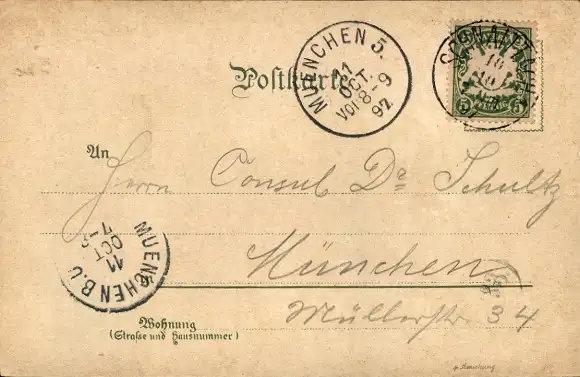 Postkarte.
MUENCHEN 5.
11
OCT.
VOR 8-9
97
5 5
An
Herrn Consul Dr Schultz
MUENCHEN B.O
11
OCT
7-8
München
Müllerstr 34
Wohnung
(Straße und Hausnummer)